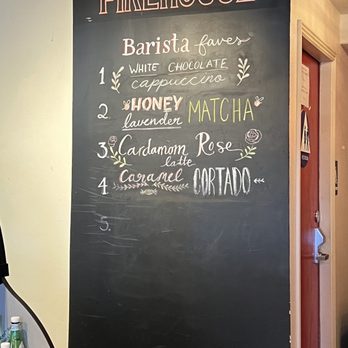 FIREHOUSE
Barista faves
1 WHITE CHOCOLATE
cappuccino
2. HONEY MATCHA
lavender
3. Cardamom Rose
latte
4 Caramel CORTADO
5.